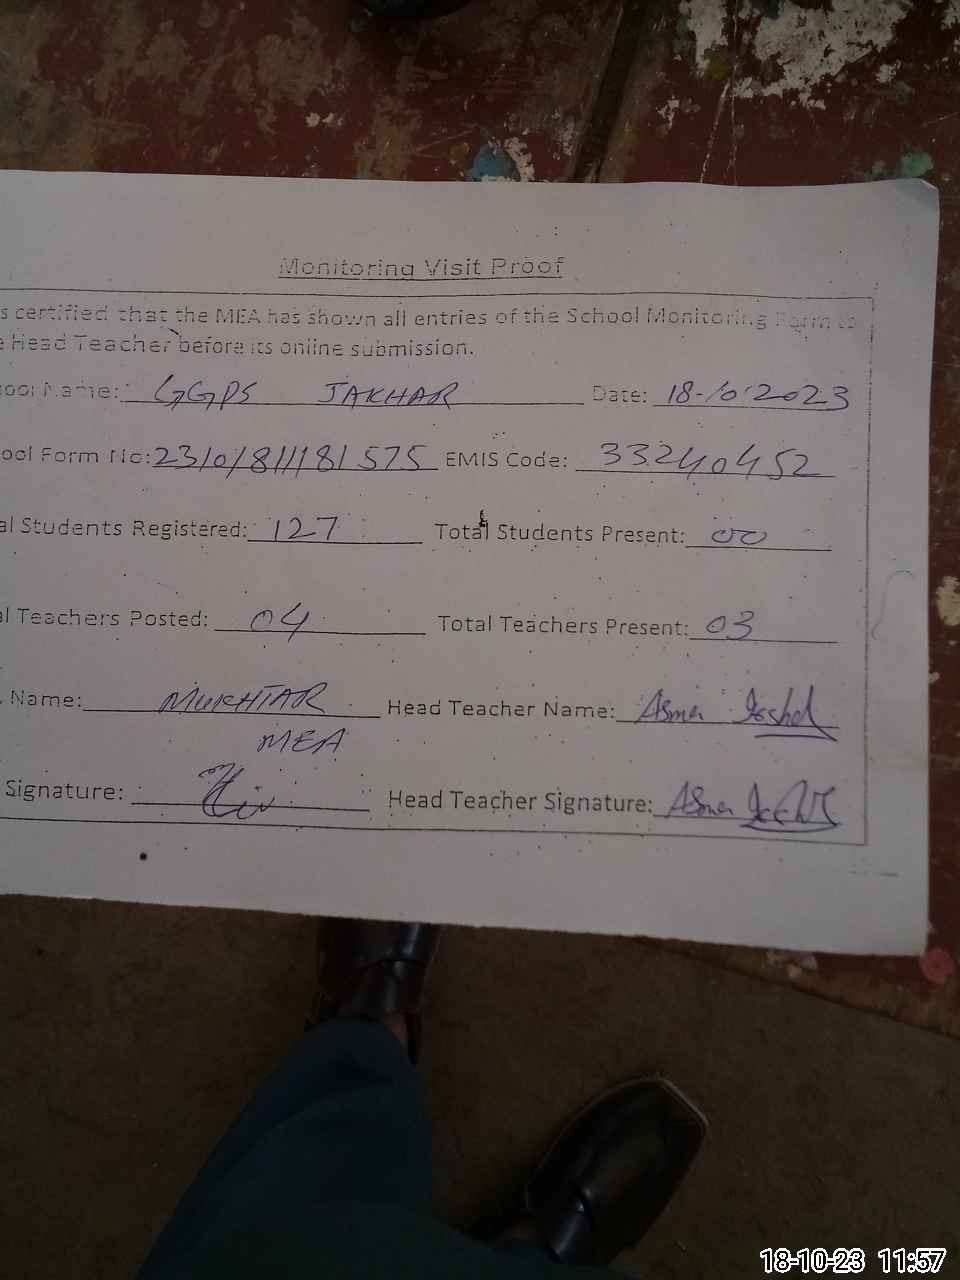 Monitoring Visit Proof
s certified that the MEA has shown all entries of the School Monitoring Form to
e Head Teacher before its online submission.
ool Name: GGPS JAKHAR Date: 18-10-2023
ool Form No: EMIS Code: 33240452
al Students Registered: 127 Total Students Present: 00
al Teachers Posted: 04 Total Teachers Present: 03
. Name: MUKHTAR Head Teacher Name: Asma
MEA
Signature: Head Teacher Signature: Asma
18-10-23 11:57